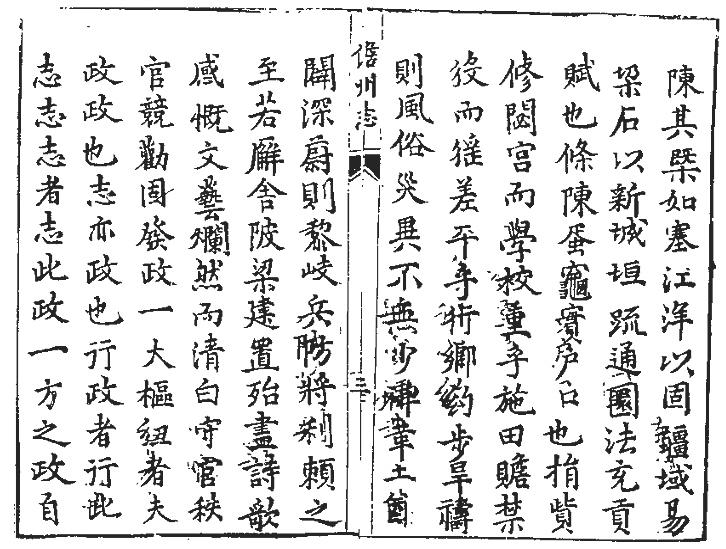 陳其槩如塞江洋以固疆域易
石以新城垣疏通圜法充貢
賦也條陳蛋竈賓户口也捐貲
修閟宮而學校重乎施田贍禁
役而徭差平乎行鄉約步旱禱
則風俗災異不無少裨葦土
儋州志
二
闢深蔚則黎岐兵防將利賴之
至若廨舍陂梁建置殆盡詩歌
感慨文藝斕然而清白守官秩
官競勸固發政一大樞紐者夫
政政也志亦政也行政者行此
志志志者志此政一方之政自